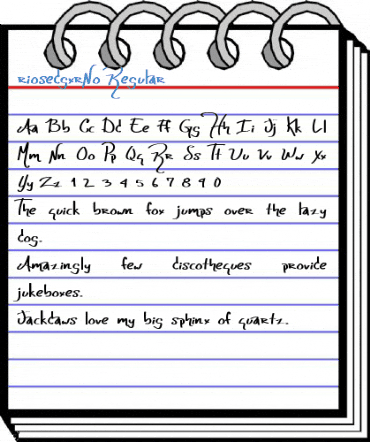 riosecgxrNo Regular
Aa Bb Cc Dd Ee Ff Gg Hh Ii Jj Kk Ll
Mm Nn Oo Pp Qq Rr Ss Tt Uu Vv Ww Xx
Yy Zz 1 2 3 4 5 6 7 8 9 0
The quick brown fox jumps over the lazy
dog.
Amazingly few discotheques provide
jukeboxes.
Jackdaws love my big sphinx of quartz.